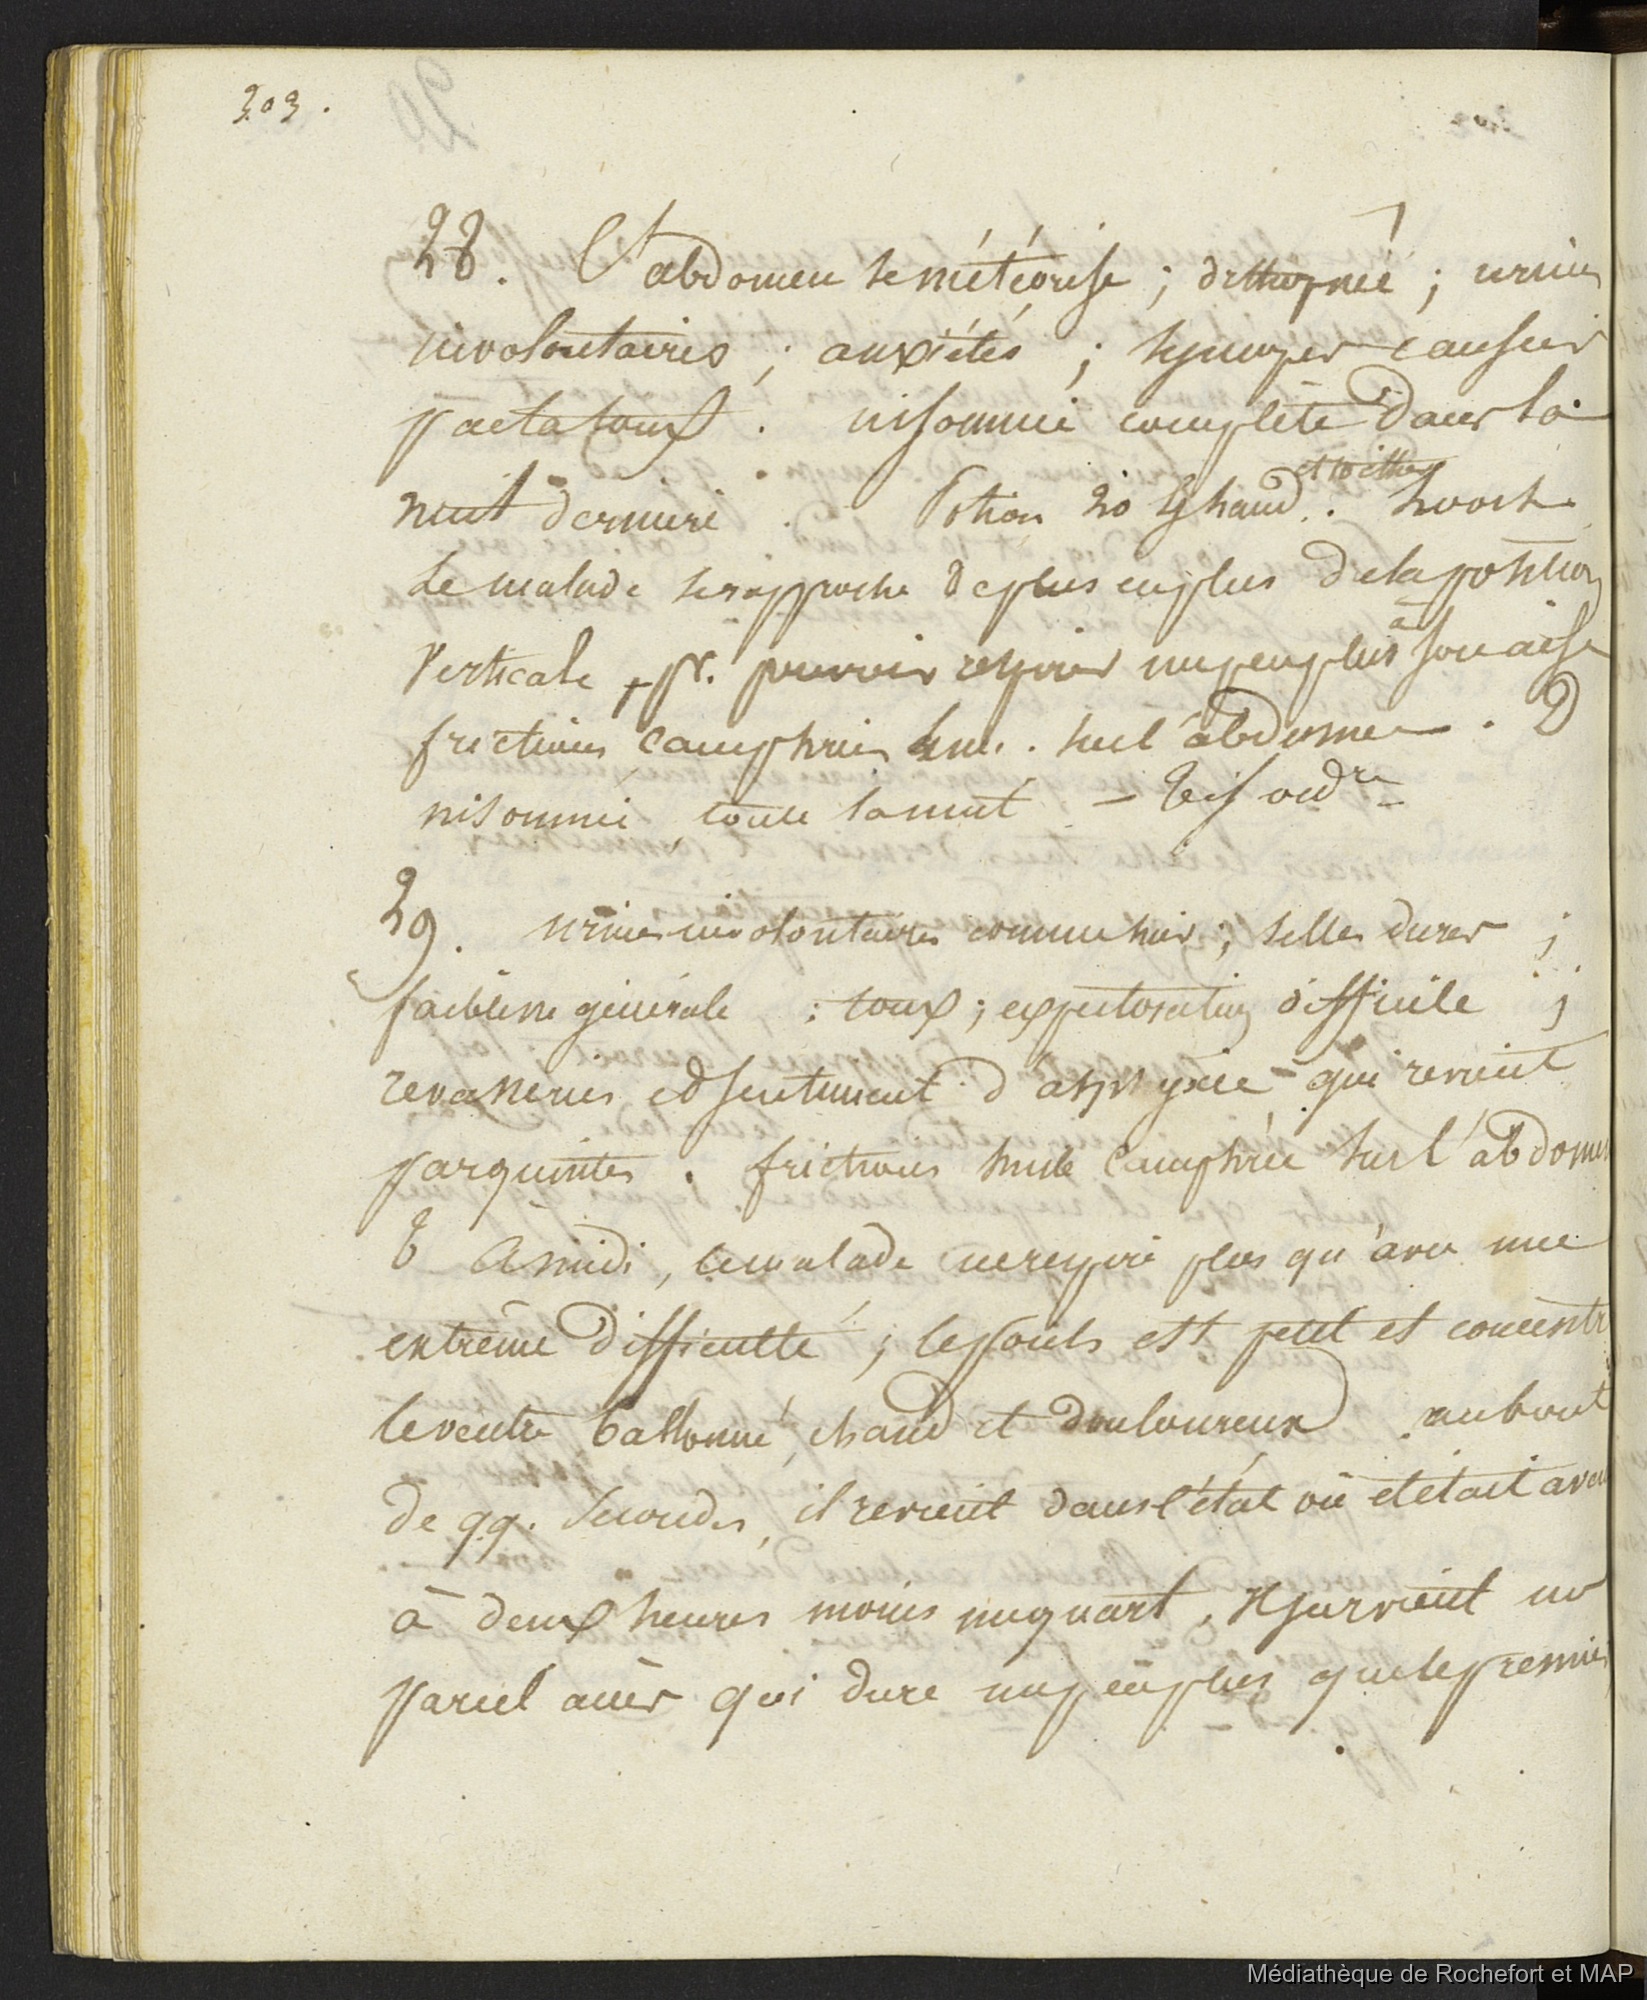 303.
28. L'abdomen se météorise ; orthopnée ; urines
involontaires ; anxiétés ; syncopes causées
par la toux. insomnie complète dans la
nuit dernière. Potion 20 et 10 éther. Looch.
Le malade se rapproche de plus en plus de la position
verticale, pr. pouvoir respirer un peu plus à son aise
frictions camphrées sur l'abdomen.
insomnie toute la nuit –
29. urines involontaires comme hier ; selles dures ;
faiblesse générale ; toux ; expectoration difficile ;
revasseries et sentiment d'asphyxie qui revient
par quintes. frictions huile camphrée sur l'abdomen
A midi, le malade ne respire plus qu'avec une
extrême difficulté ; le pouls est petit et concentré
le ventre ballonné, chaud et douloureux. au bout
de qq. secondes, il revient dans l'état où il était avant
à deux heures moins un quart, il survient un
pareil accès qui dure un peu plus que le premier
Médiathèque de Rochefort et MAP